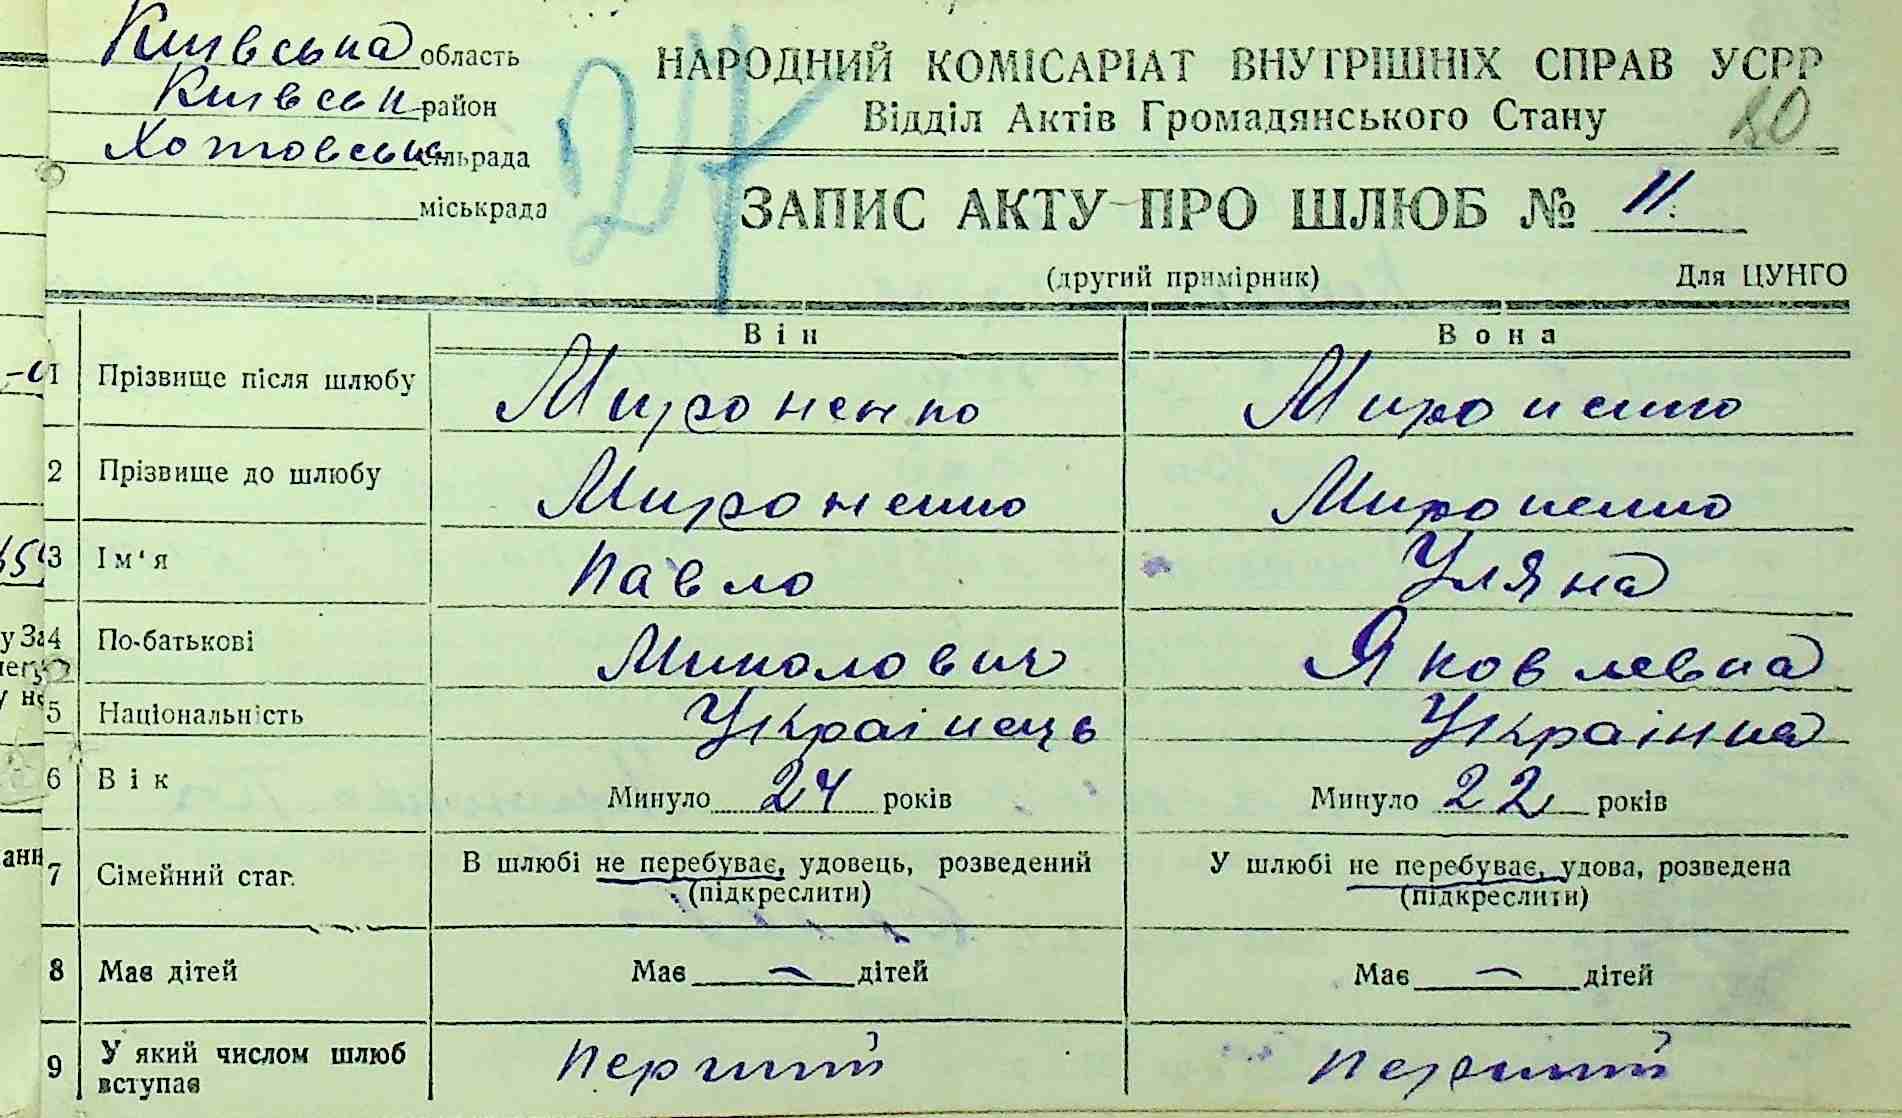 Київська область
Київськ район
Хотовська сільрада
міськрада
24
НАРОДНИЙ КОМІСАРІАТ ВНУТРІШНІХ СПРАВ УСРР
Відділ Актів Громадянського Стану
80
ЗАПИС АКТУ ПРО ШЛЮБ № 11.
(другий примірник) Для ЦУНГО
Він Вона
1 Прізвище після шлюбу Мироненко Мироненко
2 Прізвище до шлюбу Мироненко Мироненко
3 Ім'я Павло Уляна
4 По-батькові Миколович Яковлевна
5 Національність Украінець Украінка
6 Вік Минуло 24 років Минуло 22 років
7 Сімейний стан. В шлюбі не перебуває, удовець, розведений У шлюбі не перебуває, удова, розведена
(підкреслити) (підкреслити)
8 Має дітей Має — дітей Має — дітей
9 У який числом шлюб вступає Перший Перший